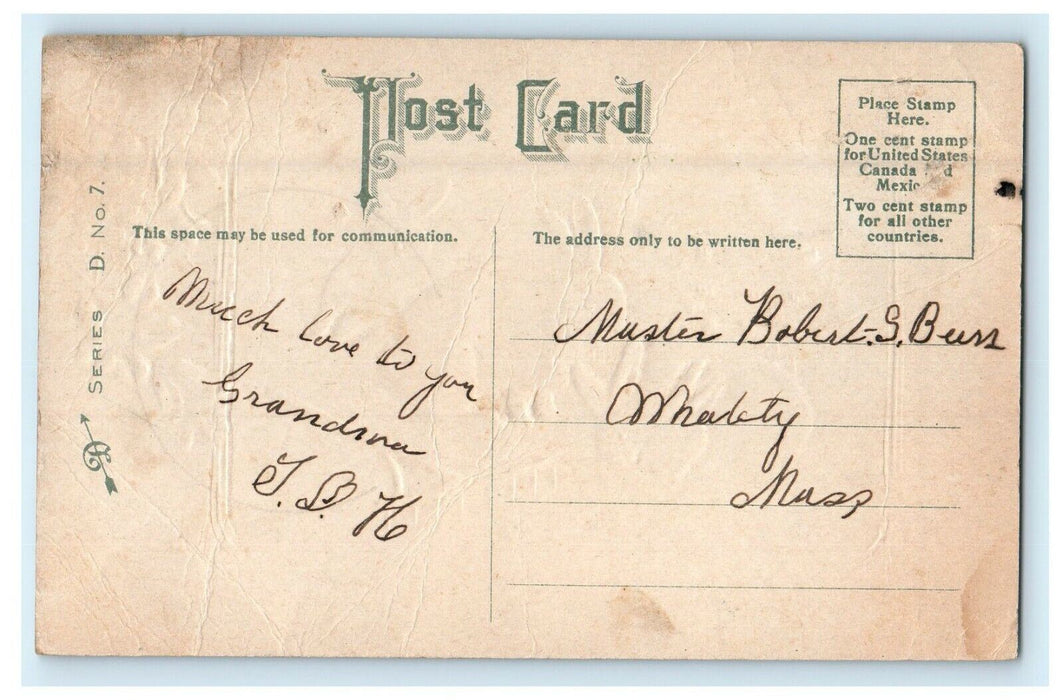 Post Card
Place Stamp
Here.
One cent stamp
for United States
Canada d
Mexic
Two cent stamp
for all other
countries.
SERIES D. No. 7.
This space may be used for communication.
The address only to be written here.
Much love to you
Grandma
T. B. H
Master Robert. S. Burr
Whately
Mass